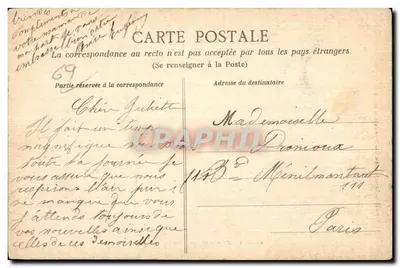 compliments à
votre maman de
ma part je vous
embrasse bien
CARTE POSTALE
La correspondance au recto n'est pas acceptée par tous les pays étrangers
(Se renseigner à la Poste)
69
Partie réservée à la correspondance
Adresse du destinataire
Chère Juliette
Il fait un temps
magnifique
toute la journée je
vous assure que nous
respirons l'air pur i
ne manque que vous
j'attends toujours de
vos nouvelles ainsi que
celles de ces demoiselles
Mademoiselle
Bd Ménilmontant
111
Paris